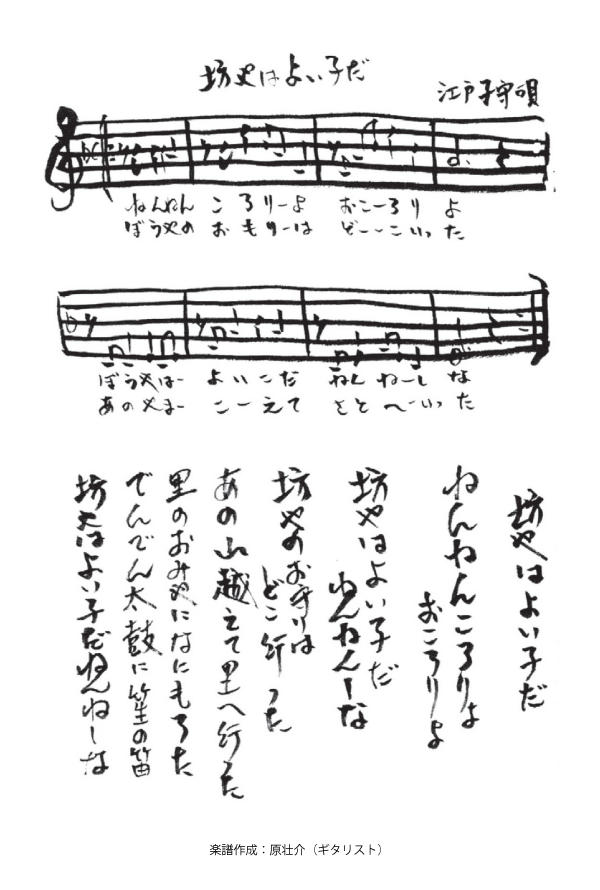 坊やはよい子だ
江戸子守唄
ねんねん ころりーよ おこーろり よ
ぼうやの おもりーは どーーこいった
ぼうやはー よいこだ ねんねーし な
あのやまー こーえて さとへーいった
坊やはよい子だ
ねんねんころりよ
おころりよ
坊やはよい子だ
ねんねんしな
坊やのお守りは
どこ行った
あの山越えて里へ行った
里のおみやになにもろた
でんでん太鼓に笙の笛
坊やはよい子だねんねしな
楽譜作成：原壮介（ギタリスト）